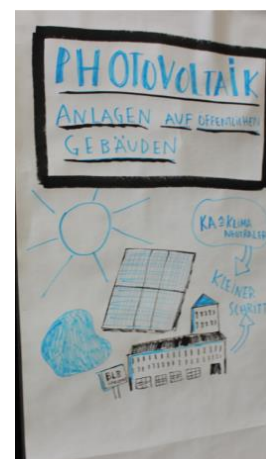 PHOTOVOLTAIK
ANLAGEN AUF ÖFFENTLICHEN
GEBÄUDEN
KLEINER
SCHRITT